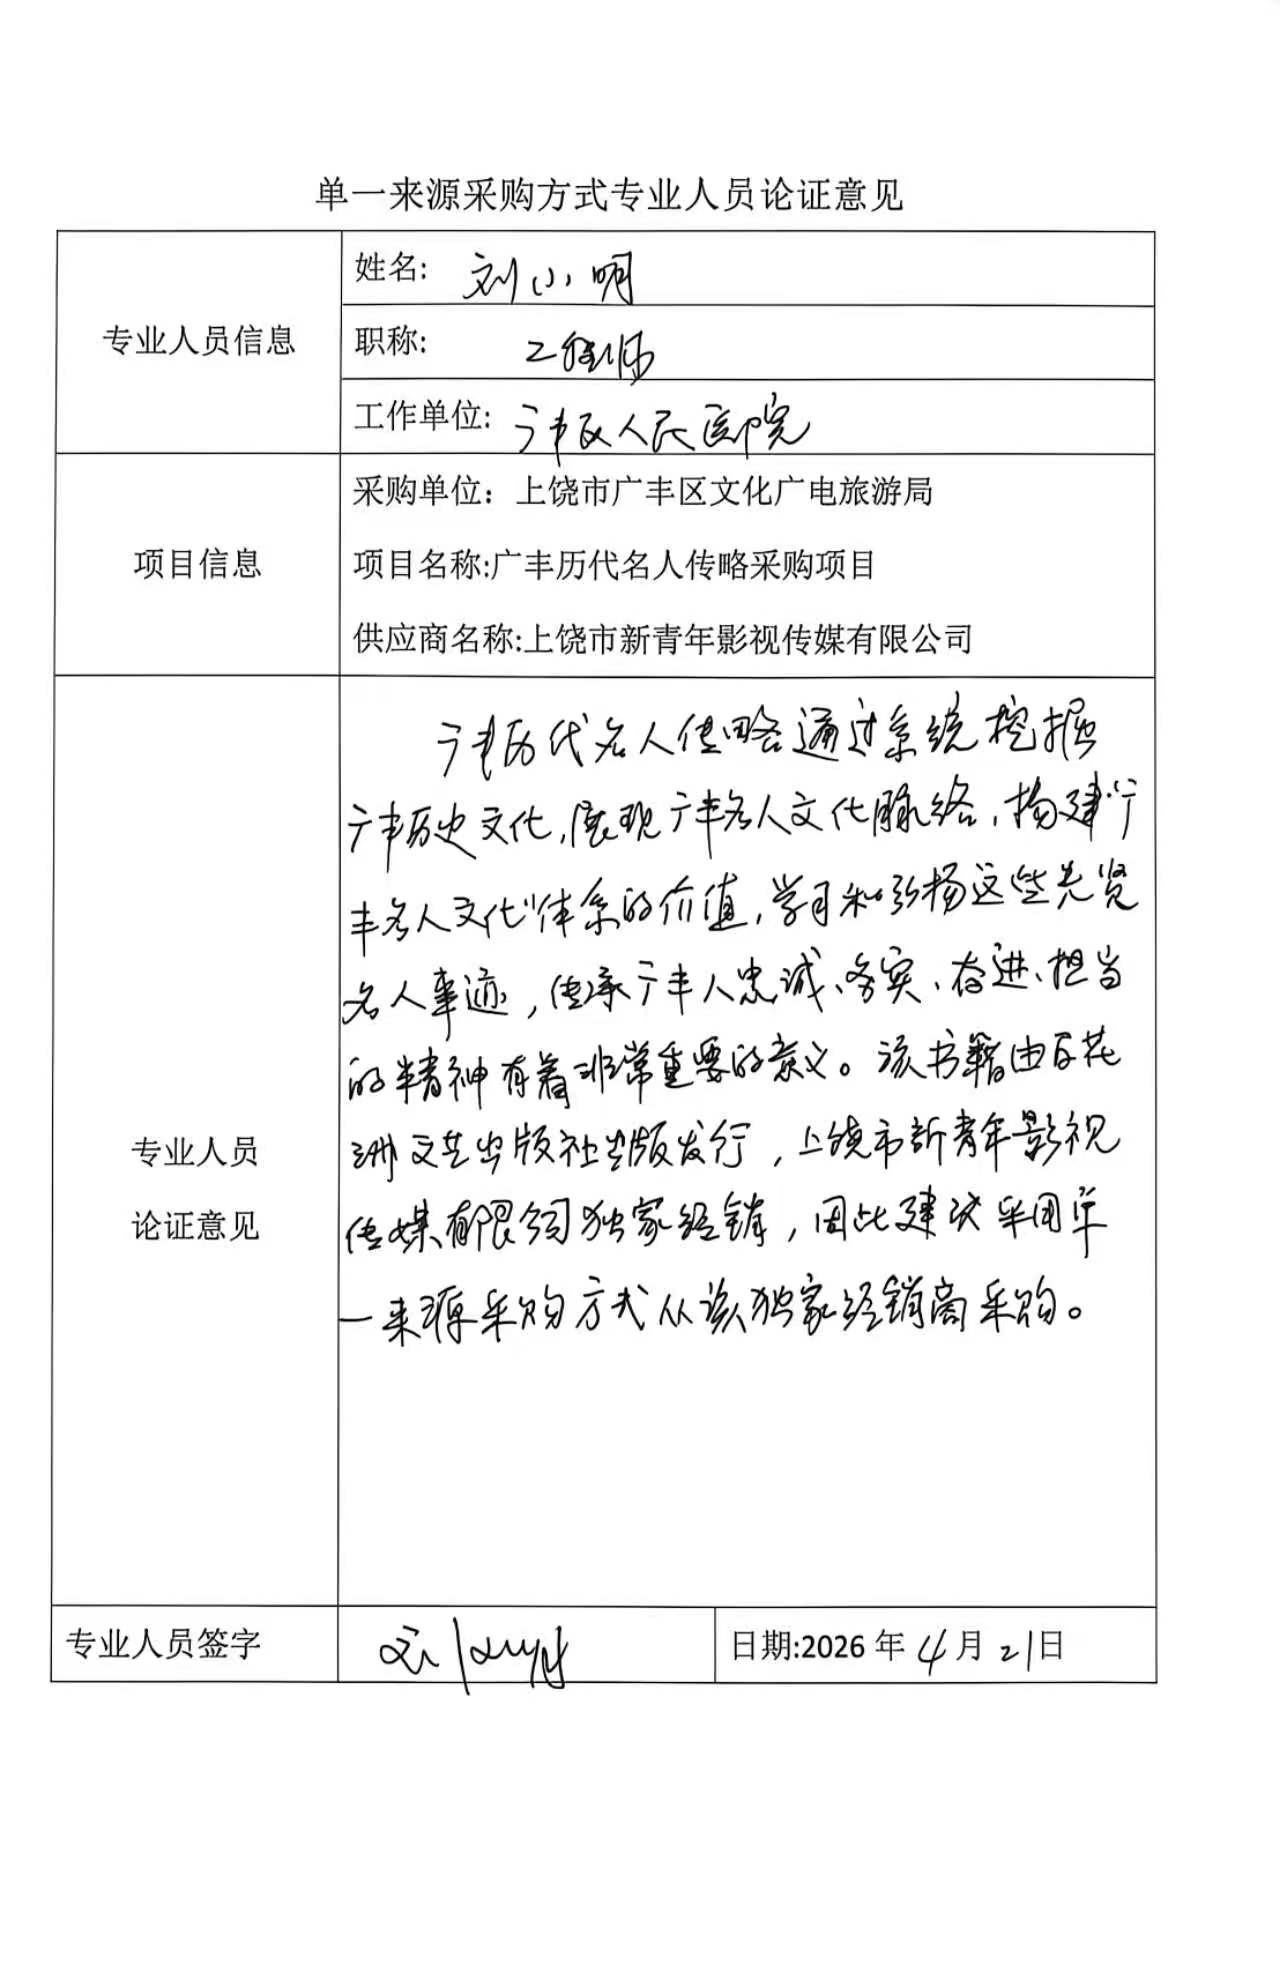 单一来源采购方式专业人员论证意见
专业人员信息
姓名: 刘小明
职称: 工程师
工作单位: 广丰区人民医院
项目信息
采购单位：上饶市广丰区文化广电旅游局
项目名称:广丰历代名人传略采购项目
供应商名称:上饶市新青年影视传媒有限公司
专业人员
论证意见
广丰历代名人传略通过系统挖掘
广丰历史文化,展现广丰名人文化脉络,构建“广
丰名人文化”体系的价值,学习和弘扬这些先贤
名人事迹,传承广丰人忠诚、务实、奋进、担当
的精神有着非常重要的意义。该书籍由百花
洲文艺出版社出版发行,上饶市新青年影视
传媒有限公司独家经销,因此建议采用单
一来源采购方式从该独家经销商采购。
专业人员签字
日期:2026年4月21日